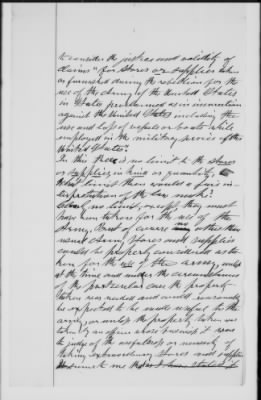 to consider the justice and validity of
claims "for stores or supplies taken
or furnished during the rebellion for the
use of the Army of the United States
in States proclaimed as in insurrection
against the United States including the
use and loss of vessels or boats while
employed in the military service of the
United States."
In this there is no limit to the stores
or supplies in kind or quantity.
What limit then would a fair in-
terpretation of the law make?
no limit, except they must
have been taken for the use of the
Army. But of course no other than
usual Army stores and supplies
could be properly considered as ta-
ken for the use of the army, unless
at the time and under the circumstances
of the particular case the property
taken was needed and could reasonably
be expected to be made useful to the
army or unless the property taken was
taken by an officer whose business it was
to judge of the usefulness or necessity of
taking extraordinary stores and supplies